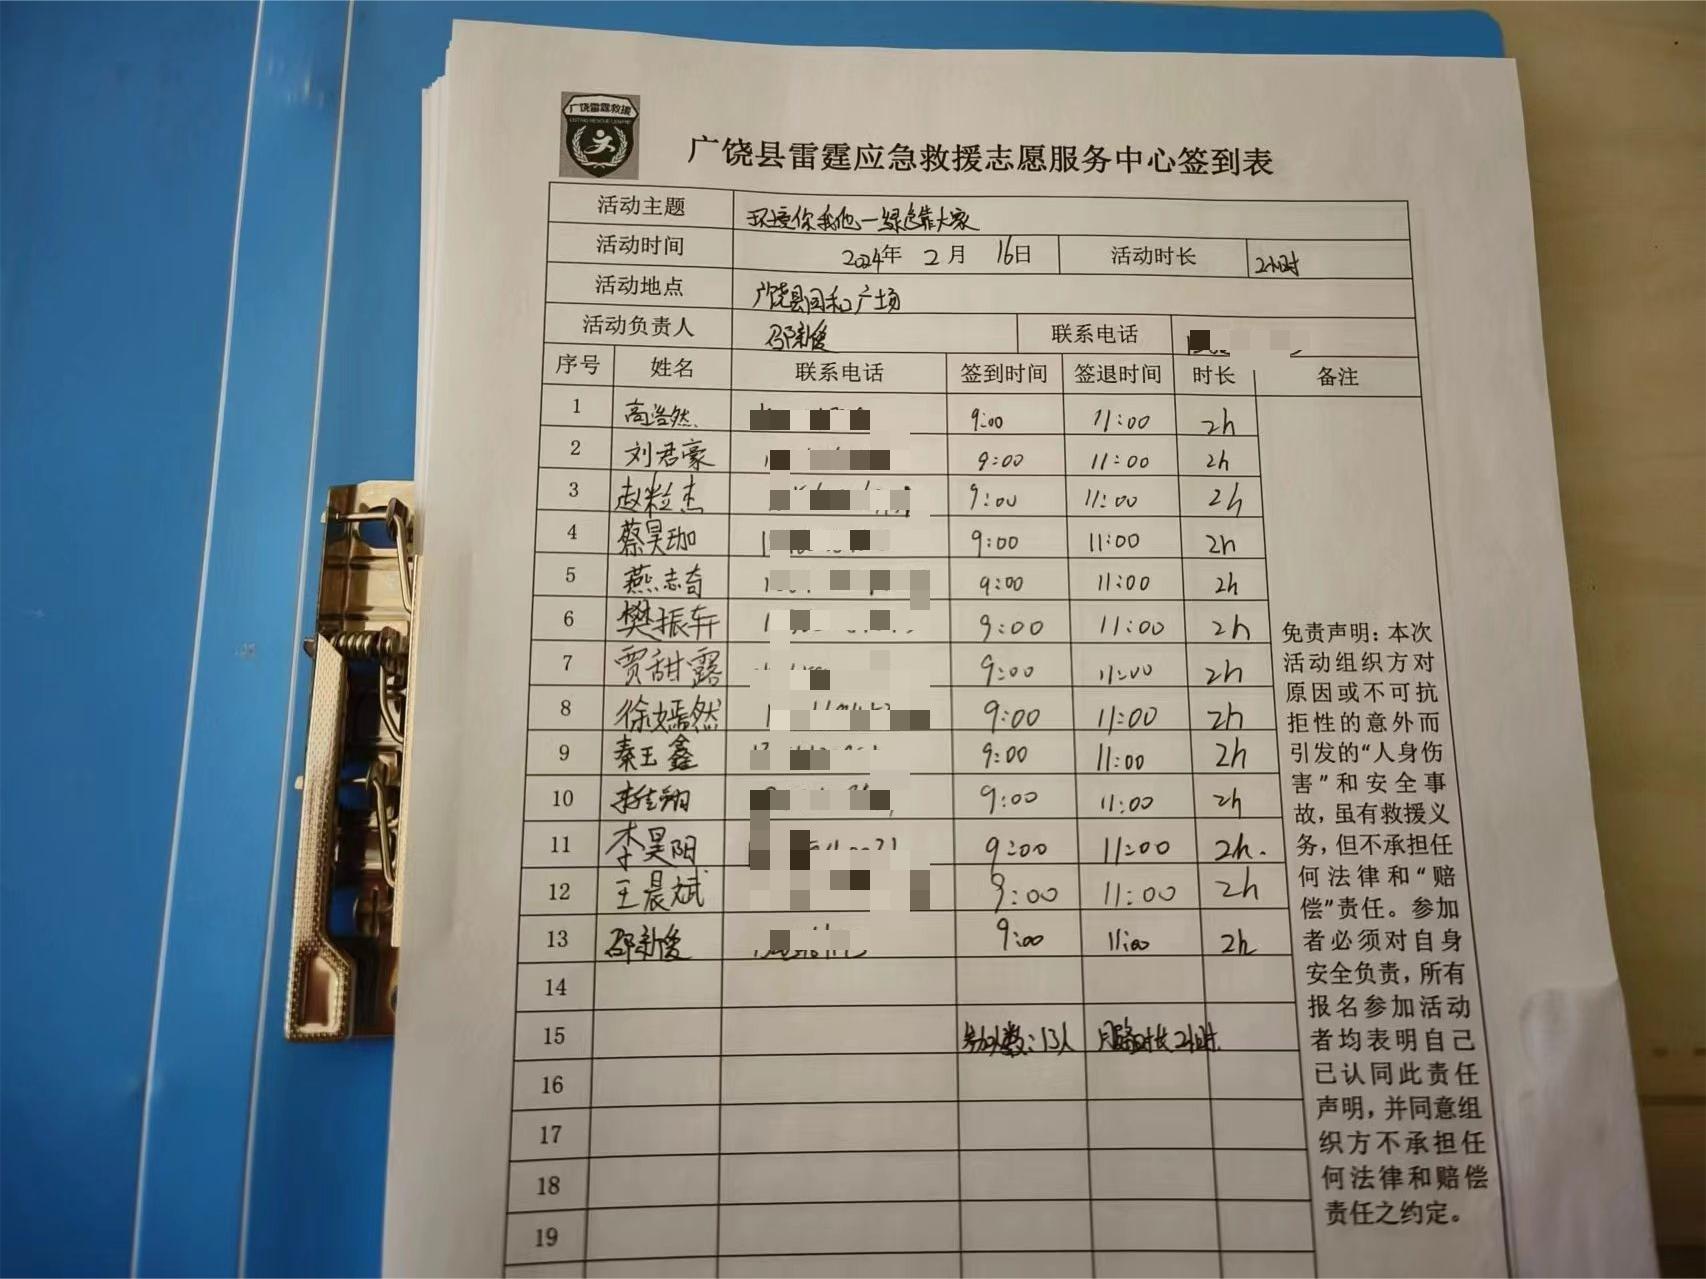 广饶雷霆救援
广饶县雷霆应急救援志愿服务中心签到表
活动主题 环境你我他一绿色靠大家
活动时间 2024年 2月 16日 活动时长 2小时
活动地点 广饶县同和广场
活动负责人 邵新俊 联系电话
序号 姓名 联系电话 签到时间 签退时间 时长 备注
1 高浩然 9:00 11:00 2h
2 刘君豪 9:00 11:00 2h
3 赵粒杰 9:00 11:00 2h
4 蔡昊珈 9:00 11:00 2h
5 燕志奇 9:00 11:00 2h
6 樊振轩 9:00 11:00 2h
7 贾甜露 9:00 11:00 2h
8 徐嫣然 9:00 11:00 2h
9 秦玉鑫 9:00 11:00 2h
10 9:00 11:00 2h
11 李昊阳 9:00 11:00 2h.
12 王晨斌 9:00 11:00 2h
13 邵新俊 9:00 11:00 2h
14
15 参加人数:13人 服务时长2小时
16
17
18
19
免责声明：本次
活动组织方对
原因或不可抗
拒性的意外而
引发的“人身伤
害”和安全事
故，虽有救援义
务，但不承担任
何法律和“赔
偿”责任。参加
者必须对自身
安全负责，所有
报名参加活动
者均表明自己
已认同此责任
声明，并同意组
织方不承担任
何法律和赔偿
责任之约定。